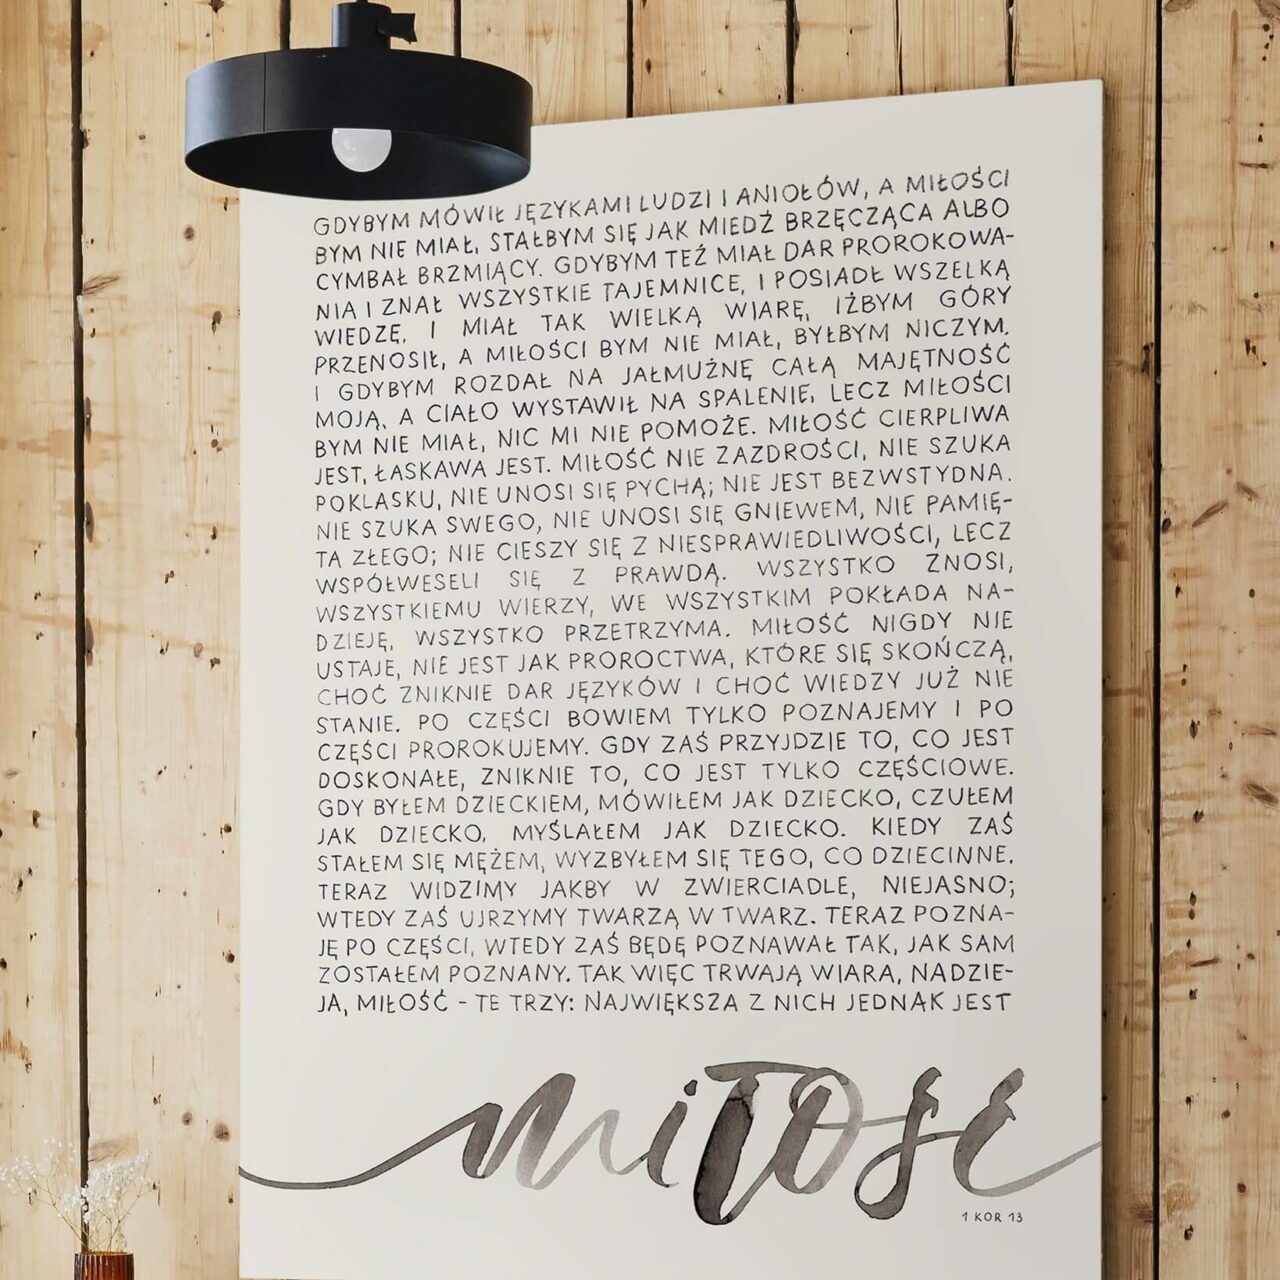 GDYBYM MÓWIŁ JĘZYKAMI LUDZI I ANIOŁÓW, A MIŁOŚCI
BYM NIE MIAŁ, STAŁBYM SIĘ JAK MIEDŹ BRZĘCZĄCA ALBO
CYMBAŁ BRZMIĄCY. GDYBYM TEŻ MIAŁ DAR PROROKOWA-
NIA I ZNAŁ WSZYSTKIE TAJEMNICE, I POSIADŁ WSZELKĄ
WIEDZĘ, I MIAŁ TAK WIELKĄ WIARĘ, IŻBYM GÓRY
PRZENOSIŁ, A MIŁOŚCI BYM NIE MIAŁ, BYŁBYM NICZYM.
I GDYBYM ROZDAŁ NA JAŁMUŻNĘ CAŁĄ MAJĘTNOŚĆ
MOJĄ, A CIAŁO WYSTAWIŁ NA SPALENIE, LECZ MIŁOŚCI
BYM NIE MIAŁ, NIC MI NIE POMOŻE. MIŁOŚĆ CIERPLIWA
JEST, ŁASKAWA JEST. MIŁOŚĆ NIE ZAZDROŚCI, NIE SZUKA
POKLASKU, NIE UNOSI SIĘ PYCHĄ; NIE JEST BEZWSTYDNA.
NIE SZUKA SWEGO, NIE UNOSI SIĘ GNIEWEM, NIE PAMIĘ-
TA ZŁEGO; NIE CIESZY SIĘ Z NIESPRAWIEDLIWOŚCI, LECZ
WSPÓŁWESELI SIĘ Z PRAWDĄ. WSZYSTKO ZNOSI,
WSZYSTKIEMU WIERZY, WE WSZYSTKIM POKŁADA NA-
DZIEJĘ, WSZYSTKO PRZETRZYMA. MIŁOŚĆ NIGDY NIE
USTAJE, NIE JEST JAK PROROCTWA, KTÓRE SIĘ SKOŃCZĄ,
CHOĆ ZNIKNIE DAR JĘZYKÓW I CHOĆ WIEDZY JUŻ NIE
STANIE. PO CZĘŚCI BOWIEM TYLKO POZNAJEMY I PO
CZĘŚCI PROROKUJEMY. GDY ZAŚ PRZYJDZIE TO, CO JEST
DOSKONAŁE, ZNIKNIE TO, CO JEST TYLKO CZĘŚCIOWE.
GDY BYŁEM DZIECKIEM, MÓWIŁEM JAK DZIECKO, CZUŁEM
JAK DZIECKO, MYŚLAŁEM JAK DZIECKO. KIEDY ZAŚ
STAŁEM SIĘ MĘŻEM, WYZBYŁEM SIĘ TEGO, CO DZIECINNE.
TERAZ WIDZIMY JAKBY W ZWIERCIADLE, NIEJASNO;
WTEDY ZAŚ UJRZYMY TWARZĄ W TWARZ. TERAZ POZNA-
JĘ PO CZĘŚCI, WTEDY ZAŚ BĘDĘ POZNAWAŁ TAK, JAK SAM
ZOSTAŁEM POZNANY. TAK WIĘC TRWAJĄ WIARA, NADZIE-
JA, MIŁOŚĆ - TE TRZY: NAJWIĘKSZA Z NICH JEDNAK JEST
miłość
1 KOR 13